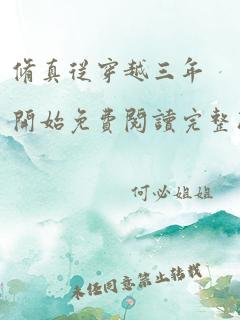 脩真從穿越三年
開始免費閱讀完整
何必姐姐
未经同意禁止转载